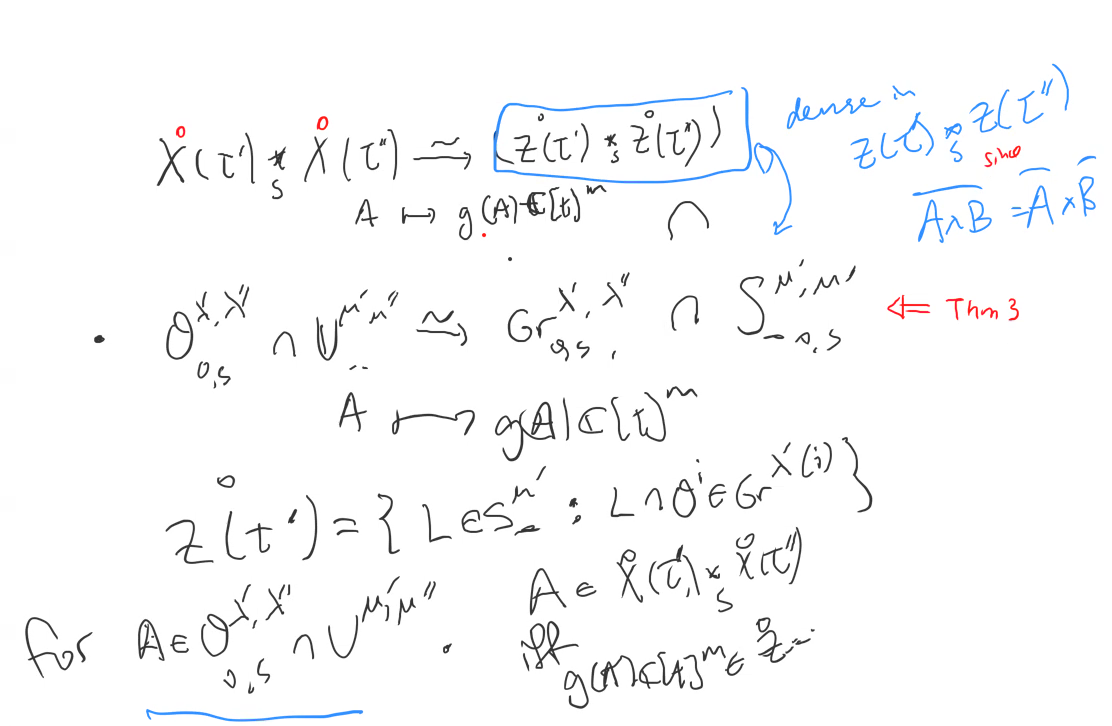 X̊(τ') *_S X̊(τ'') ≃→ (Z̊(τ') *_S Z̊(τ''))
dense in
Z(τ') *_S Z(τ'')
since
\overline{A×B} = \overline{A} × \overline{B}
A ↦ g(A) ℂ[t]^m
∩
• O_{0,S}^{λ',λ''} ∩ U^{μ',μ''} ≃→ Gr_{0,S}^{λ',λ''} ∩ S_{-0,S}^{μ',μ''} ⇐ Thm 3
A ↦ g(A) ℂ[t]^m
Z̊(τ') = { L ∈ S_-^{μ'} : L ∩ O^i ∈ Gr^{λ'(i)} }
for A ∈ O_{0,S}^{λ',λ''} ∩ U^{μ',μ''} .
A ∈ X̊(τ') *_S X̊(τ'')
iff
g(A) ℂ[t]^m ∈ Z̊